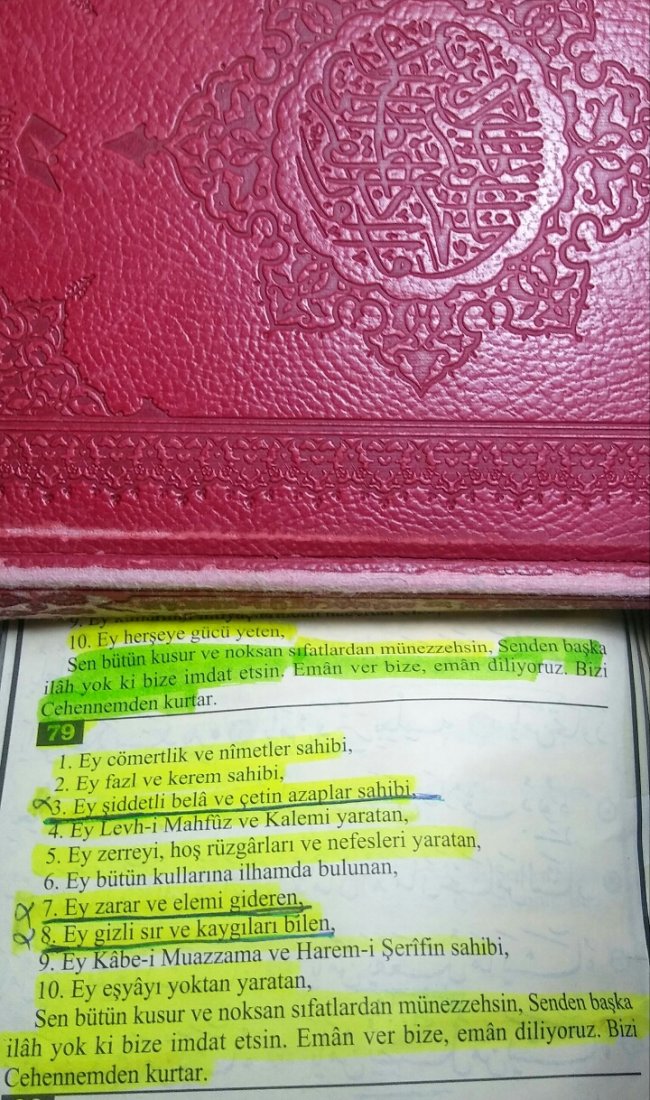 10. Ey herşeye gücü yeten,
Sen bütün kusur ve noksan sıfatlardan münezzehsin, Senden başka
ilâh yok ki bize imdat etsin. Emân ver bize, emân diliyoruz. Bizi
Cehennemden kurtar.
79
1. Ey cömertlik ve nîmetler sahibi,
2. Ey fazl ve kerem sahibi,
3. Ey şiddetli belâ ve çetin azaplar sahibi,
4. Ey Levh-i Mahfûz ve Kalemi yaratan,
5. Ey zerreyi, hoş rüzgârları ve nefesleri yaratan,
6. Ey bütün kullarına ilhamda bulunan,
7. Ey zarar ve elemi gideren,
8. Ey gizli sır ve kaygıları bilen,
9. Ey Kâbe-i Muazzama ve Harem-i Şerîfin sahibi,
10. Ey eşyâyı yoktan yaratan,
Sen bütün kusur ve noksan sıfatlardan münezzehsin, Senden başka
ilâh yok ki bize imdat etsin. Emân ver bize, emân diliyoruz. Bizi
Cehennemden kurtar.